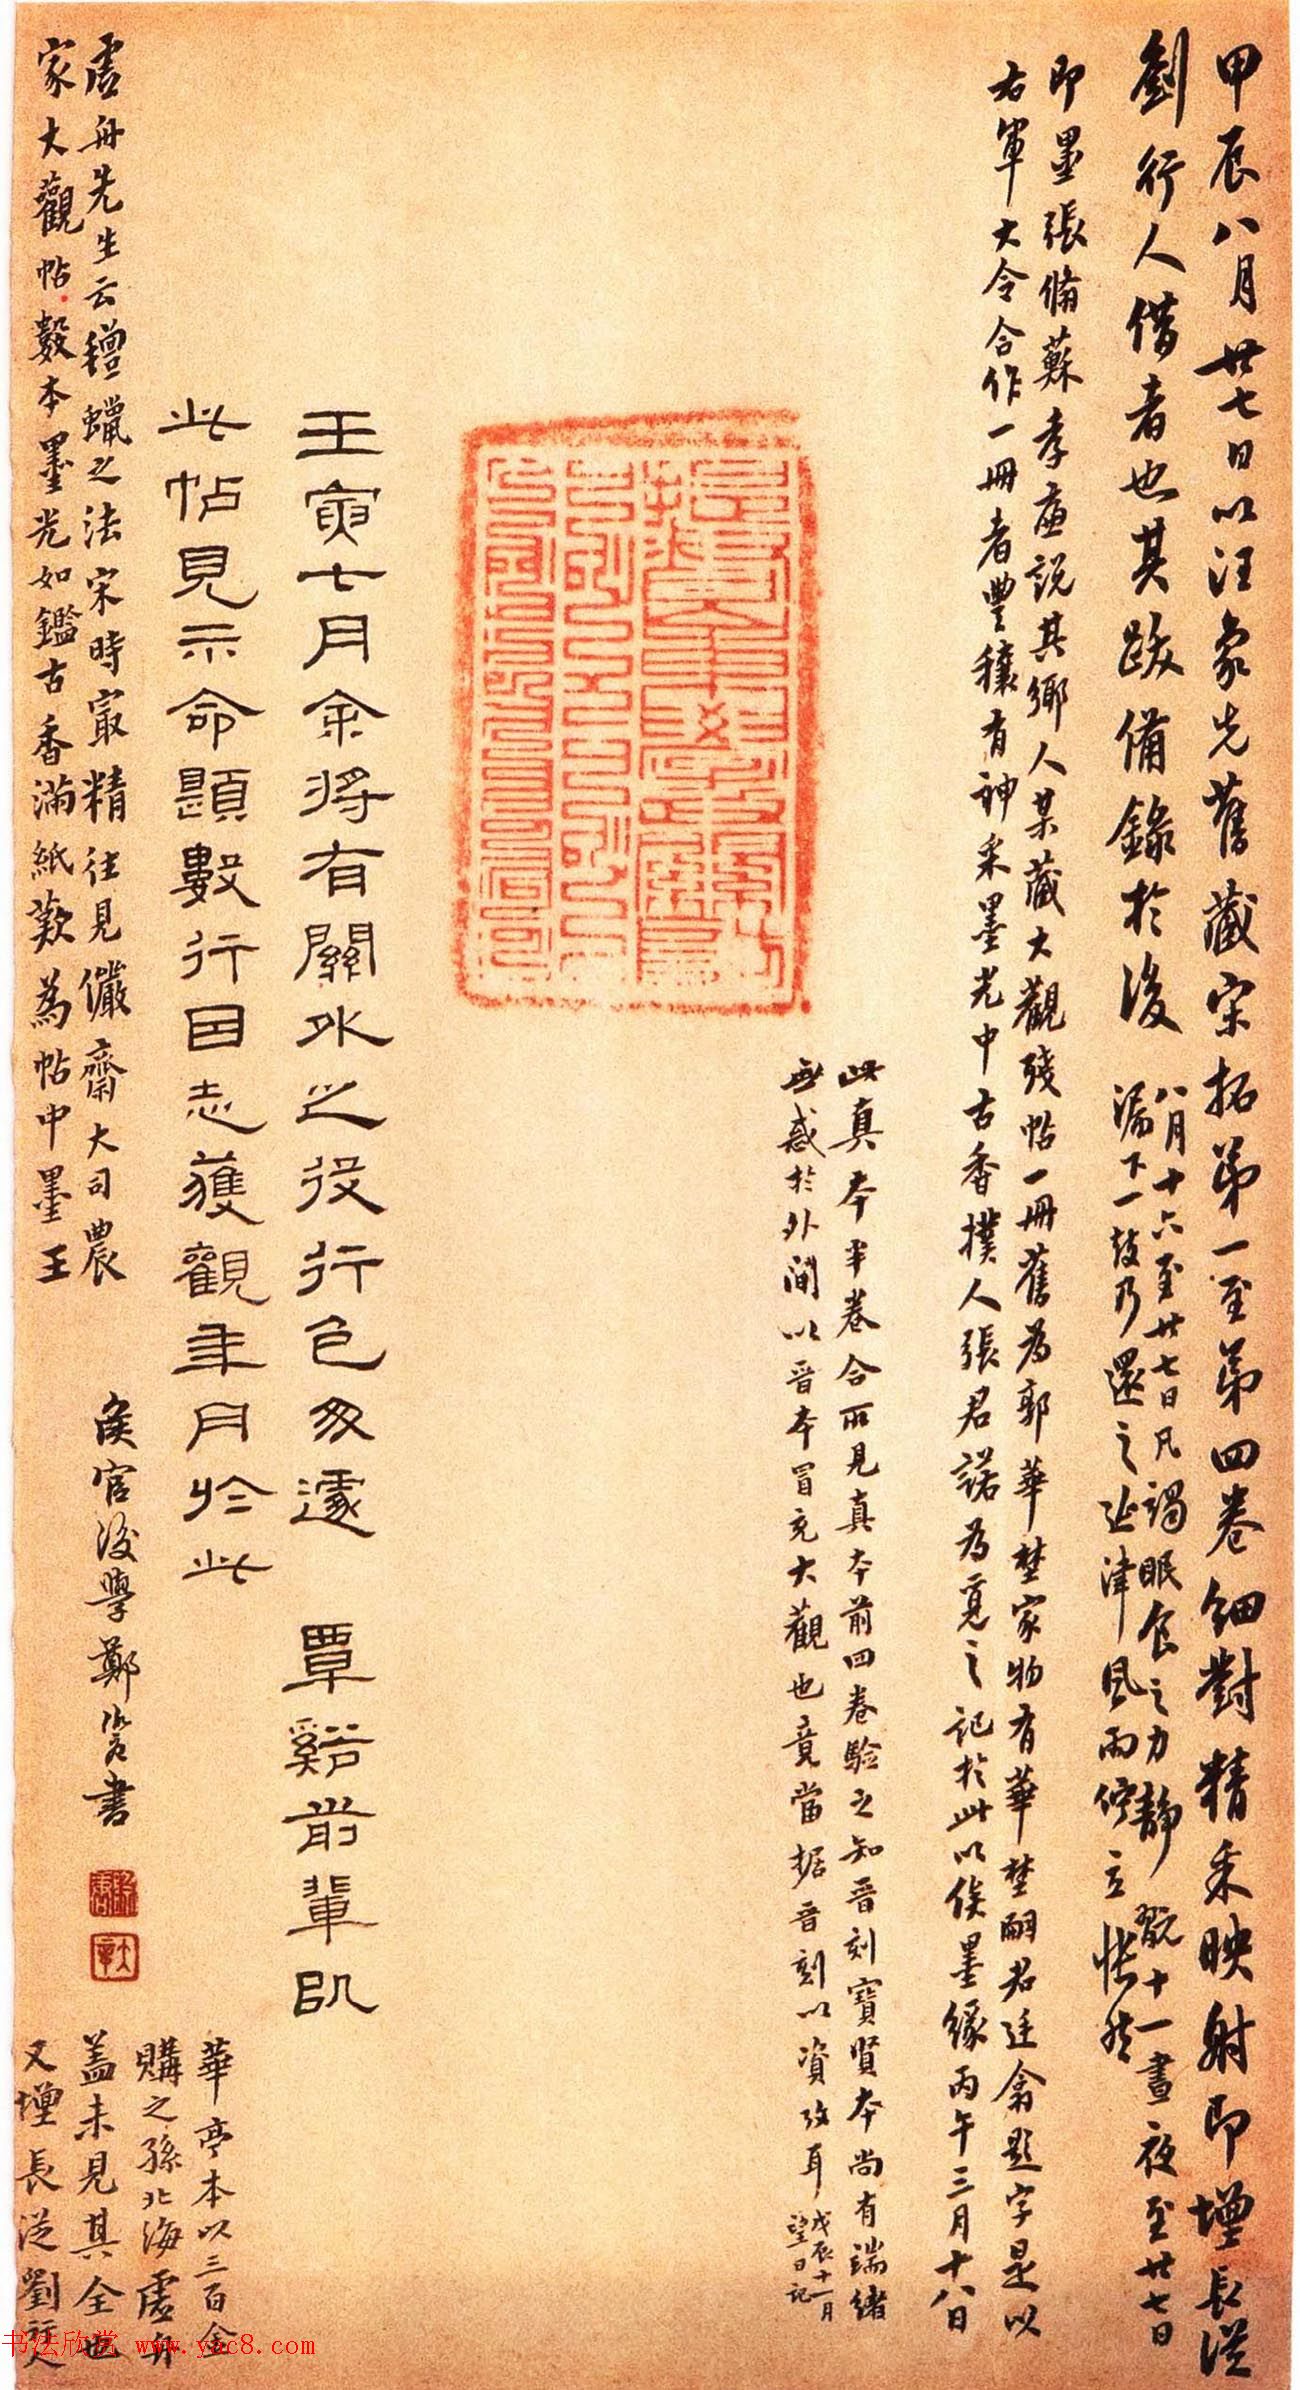 甲辰八月廿七日以汪象先舊藏宋拓第一至第四卷細對精采映射即增長從
劉行人借者也其跋備錄於後
八月十六至廿七日凡謁眠食之力靜翫十一晝夜至廿七日
漏下一鼓乃還之延津風雨佇立悵然
即墨張脩蘇孝廉說其鄉人某藏大觀殘帖一冊舊為郭華埜家物有華埜嗣君廷翕題字是以
右軍大令合作一冊者豐穰有神采墨光中古香撲人張君諾為覓之記於此以俟墨緣丙午三月十八日
此真本半卷合所見真本前四卷驗之知晉刻寶賢本尚有端緒
無惑於外間以晉本冒充大觀也竟當據晉刻以資攷耳
戊辰十一月
望日記
壬寅七月余將有關外之役行色匆遽 覃谿前輩邸
此帖見示命題數行因志獲觀年月於此
虛舟先生云氊蠟之法宋時最精往見儼齋大司農
家大觀帖數本墨光如鑑古香滿紙歎為帖中墨王
侯官後學鄭 書
華亭本以三百金
購之孫北海虛舟
蓋未見其全也
又增長從劉行人
书法欣赏 www.yac8.com